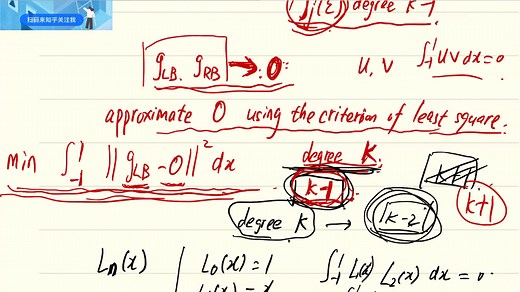 扫码来知乎关注我
f_j(ξ) degree k-1
g_LB, g_RB → 0 u, v ∫_{-1}^{1} UV dx = 0
approximate 0 using the criterion of least square.
min ∫_{-1}^{1} ‖g_LB - 0‖² dx degree K
k-1
K+1
degree K → k-2
L_n(x) L_0(x) = 1 ∫_{-1}^{1} L_1(x) L_2(x) dx = 0